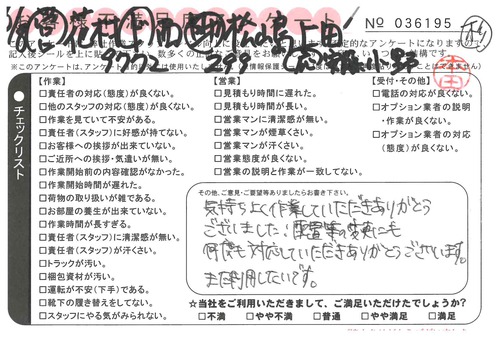 № 036195
※このアンケートは、
チェックリスト
【作業】
□責任者の対応(態度)が良くない。
□他のスタッフの対応(態度)が良くない。
□作業を見ていて不安がある。
□責任者(スタッフ)に好感が持てない。
□お客様への挨拶が出来ていない。
□ご近所への挨拶・気遣いが無い。
□作業開始前の内容確認がなかった。
□作業開始時間が遅れた。
□荷物の取り扱いが雑である。
□お部屋の養生が出来ていない。
□作業時間が長すぎる。
□責任者(スタッフ)に清潔感が無い。
□責任者(スタッフ)が汗くさい。
□トラックが汚い。
□梱包資材が汚い。
□運転が不安(下手)である。
□靴下の履き替えをしてない。
□スタッフにやる気がみられない。
【営業】
□見積もり時間に遅れた。
□見積もり時間が長い。
□営業マンに清潔感が無い。
□営業マンが煙草くさい。
□営業マンが汗くさい。
□営業態度が良くない。
□営業の説明と作業が一致してない。
【受付・その他】
□電話の対応が良くない。
□オプション業者の説明
・作業が良くない。
□オプション業者の対応
(態度)が良くない。
その他、ご意見・ご要望等ありましたらお書き下さい。
気持ちよく作業していただきありがとう
ございました。配置等の変更にも
何度も対応していただきありがとうございます。
また利用したいです。
☆当社をご利用いただきまして、ご満足いただけたでしょうか?
□不満 □やや不満 □普通 □やや満足 □満足